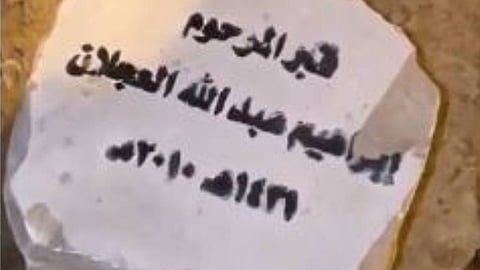 قبر المرحوم
ابراهيم عبد الله العجلان
١٤٣١هـ ٢٠١٠مـ